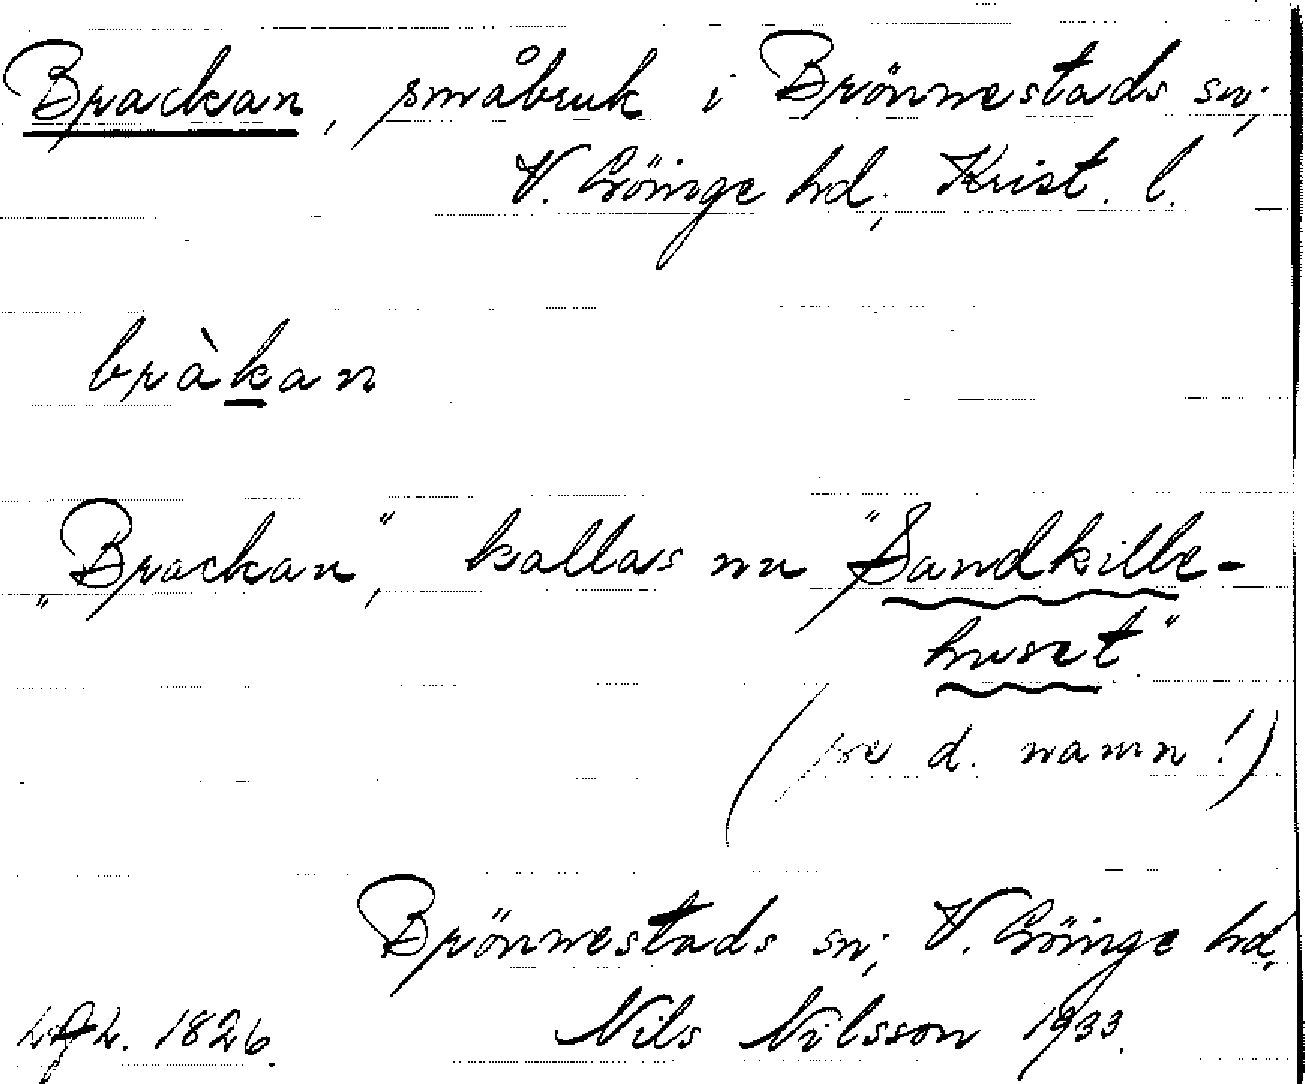 Brackan, småbruk i Brönnestads sn;
V. Göinge hd; Krist. l.
bràkan
„Brackan", kallas nu "Sandkille-
huset."
(se d. namn!)
Brönnestads sn; V. Göinge hd,
1826. Nils Nilsson 1933.